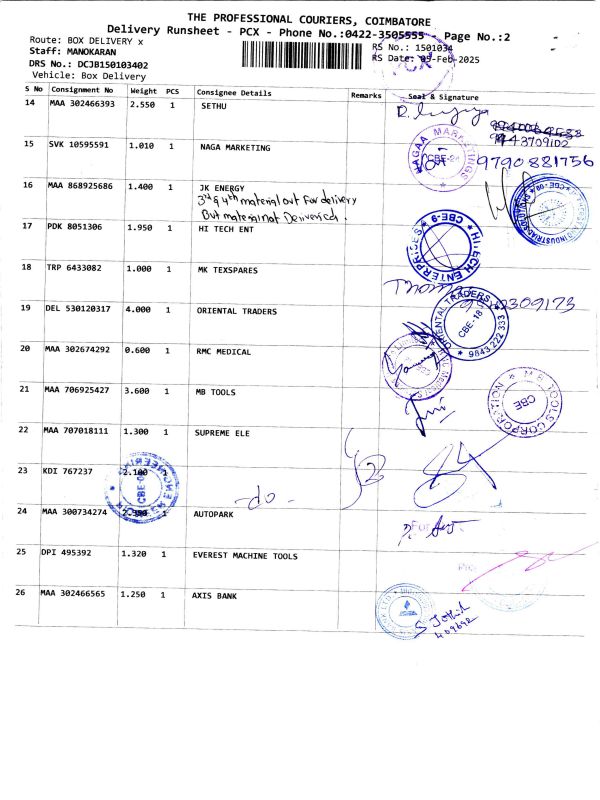 THE PROFESSIONAL COURIERS, COIMBATORE
Delivery Runsheet - PCX - Phone No.:0422-3505555 - Page No.:2
Route: BOX DELIVERY x
Staff: MANOKARAN
DRS No.: DCJB150103402
Vehicle: Box Delivery
RS No.: 1501034
RS Date: 05-Feb-2025
S No Consignment No Weight PCS Consignee Details Remarks Seal & Signature
14 MAA 302466393 2.550 1 SETHU
9443709102
15 SVK 10595591 1.010 1 NAGA MARKETING
NAGAA MARKETINGS
9790881756
16 MAA 868925686 1.400 1 JK ENERGY
3rd & 4th material out For delivery
But material not Delivered.
17 PDK 8051306 1.950 1 HI TECH ENT
HI-TECH ENTERPRISES CBE-9
18 TRP 6433082 1.000 1 MK TEXSPARES
19 DEL 530120317 4.000 1 ORIENTAL TRADERS
ORIENTAL TRADERS CBE-18 * 9843 222 333 *
20 MAA 302674292 0.600 1 RMC MEDICAL
21 MAA 706925427 3.600 1 MB TOOLS
* M.B. TOOLS CORPORATION CBE
22 MAA 707018111 1.300 1 SUPREME ELE
23 KDI 767237 2.100 1
-do-
24 MAA 300734274 1 AUTOPARK
25 DPI 495392 1.320 1 EVEREST MACHINE TOOLS
26 MAA 302466565 1.250 1 AXIS BANK
S Jothil
409692